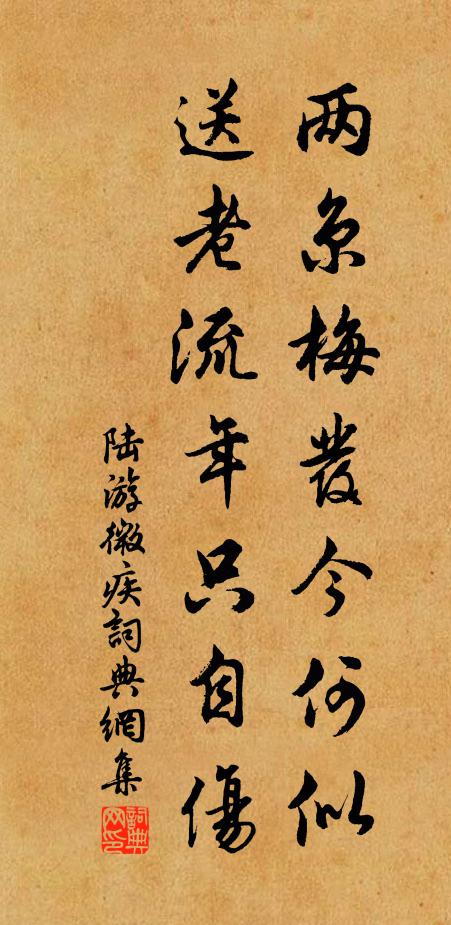 两京梅發今何似
送老流年只自傷
陆游微疾詞典網集
詞典网印